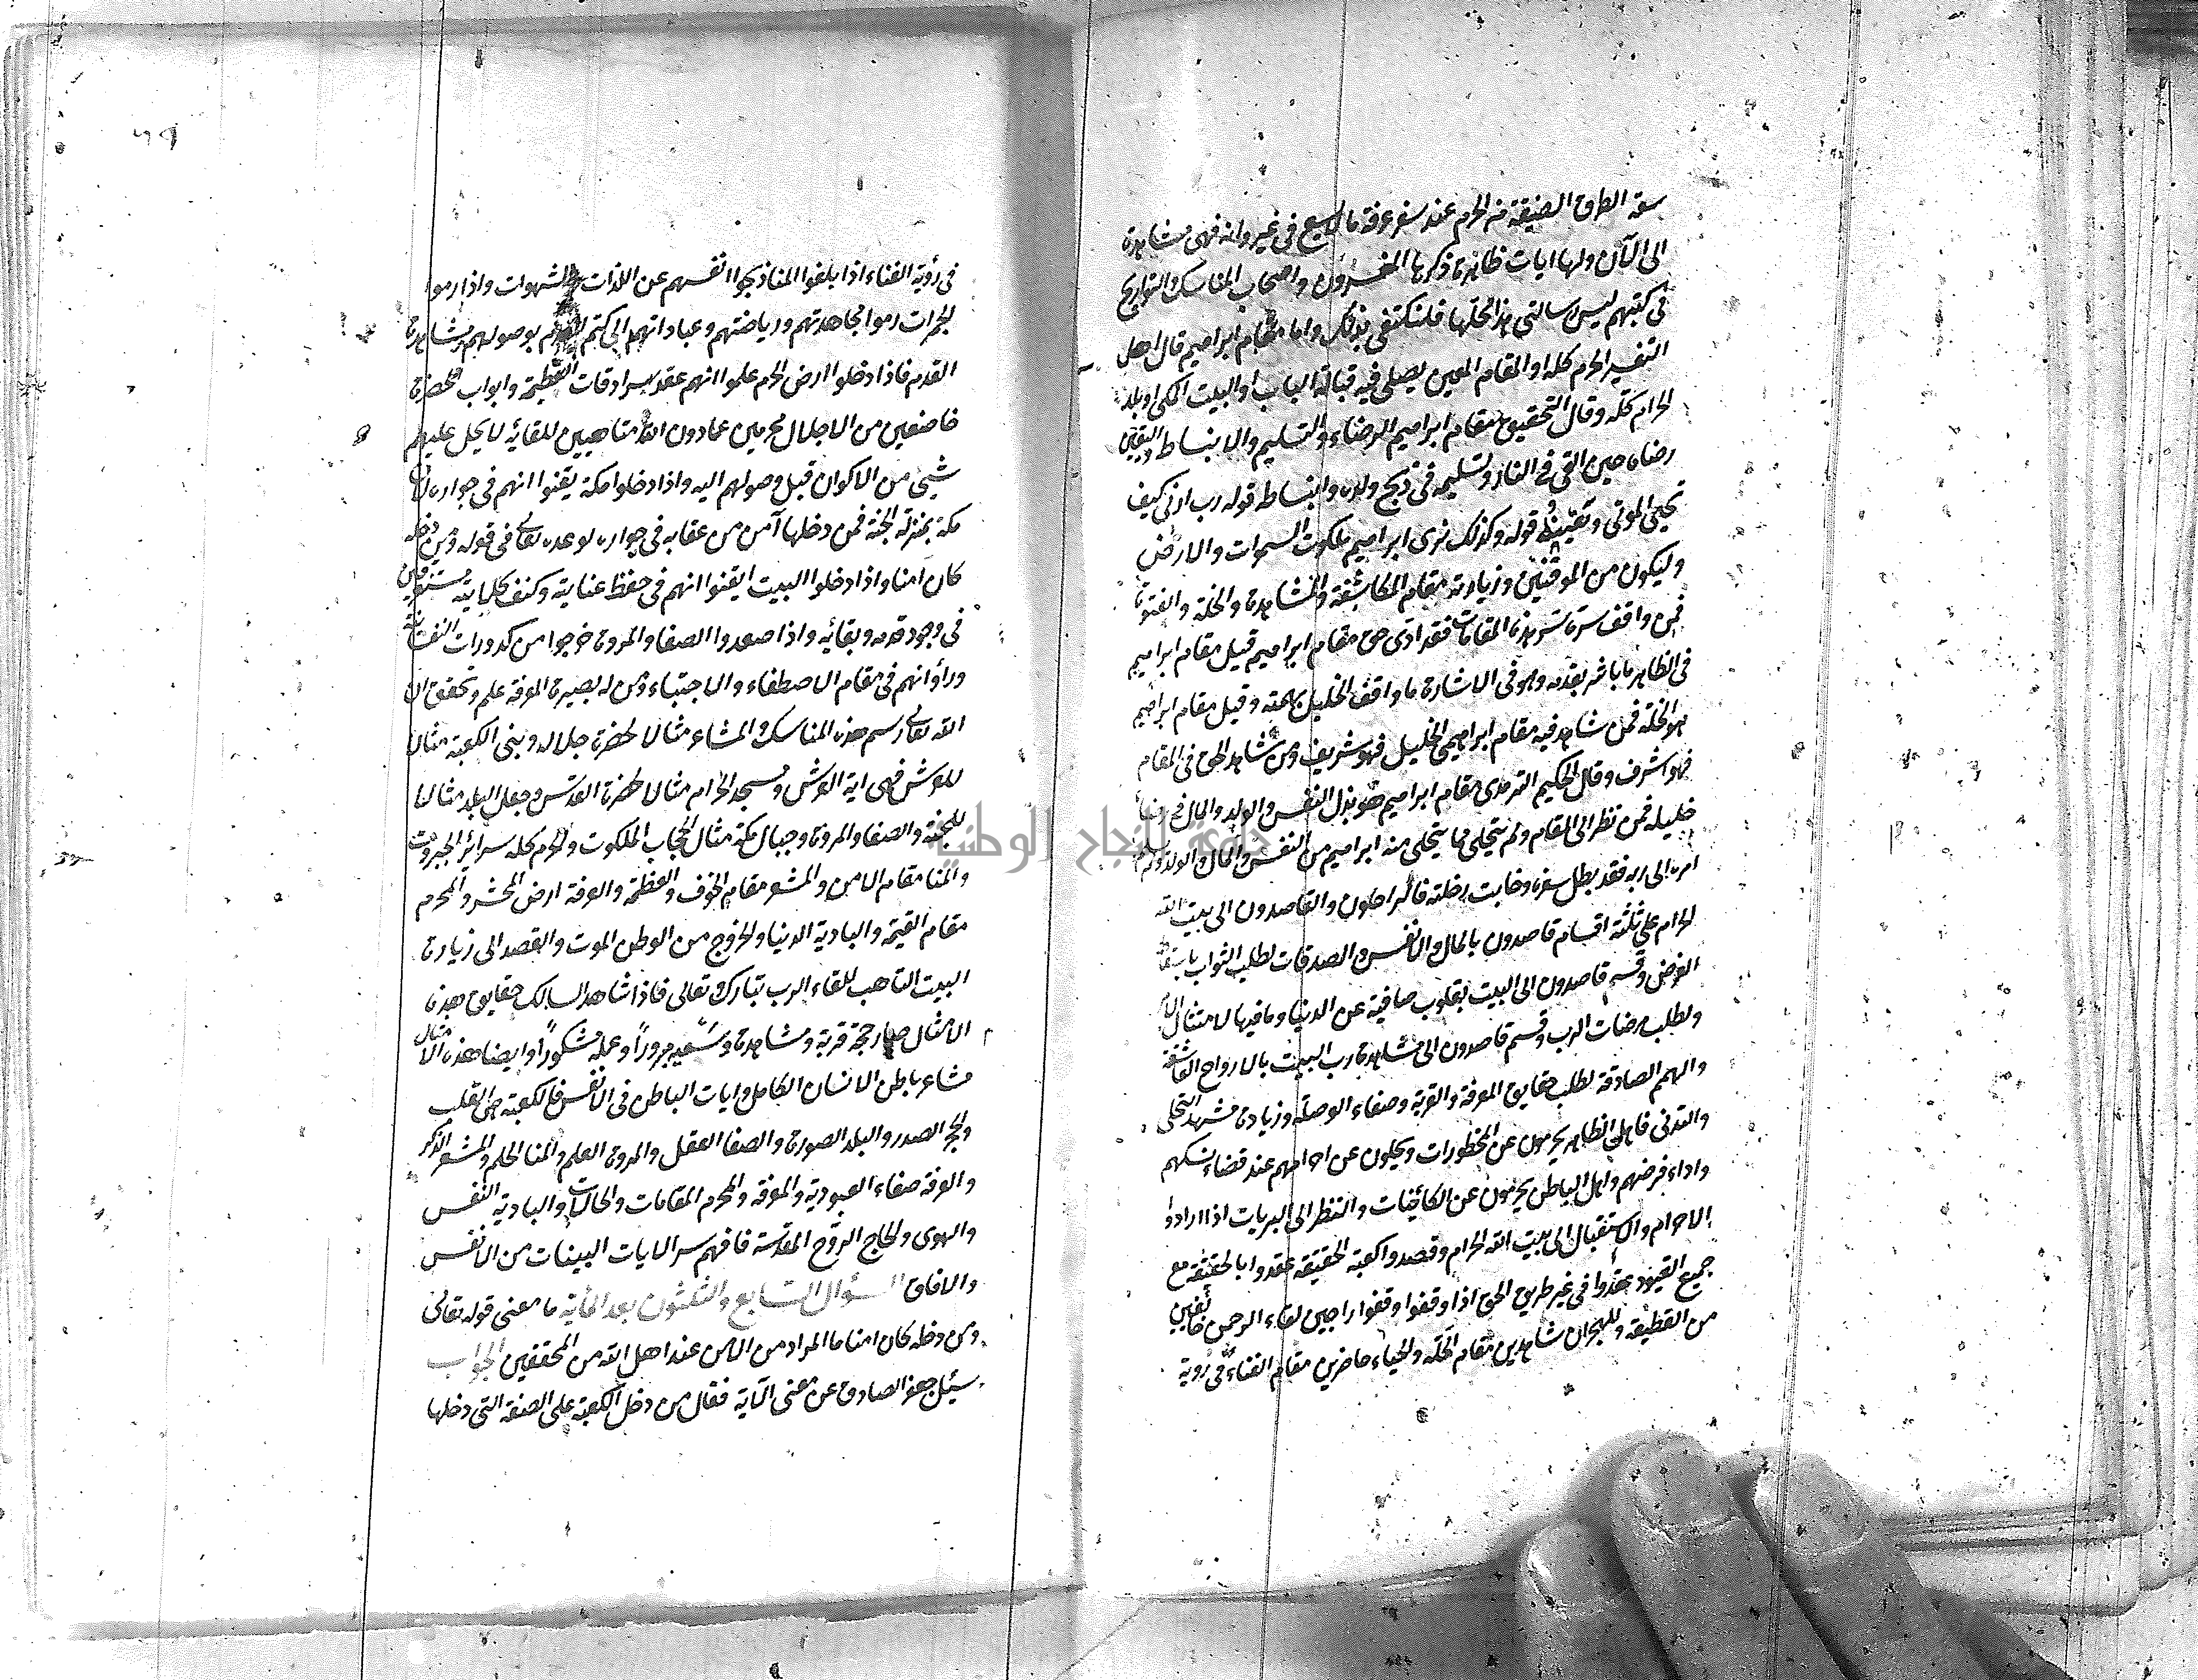 سعة الطرق الضيقة من الحرم عند سفر عرفة ما لا يسع في غير وانه فهي مشاهدة
الى الآن ولها ايات ظاهرة ذكرها المفسرون واصحاب المناسك والتواريخ
في كتبهم ليس رسالتي هذه محلها فلنكتفي بذلك واما مقام ابراهيم قال اهل
التفسير الحرم كله او المقام المعين يصلى فيه قبالة الباب او البيت المكي او بلد
الحرام كله وقال التحقيق مقام ابراهيم الرضاء والتسليم والانبساط واليقين
رضاه حين القي في النار وتسليمه في ذبح ولده وانبساطه قوله رب ارني كيف
تحيي الموتى ويقينه قوله وكذلك نرى ابراهيم ملكوت السموات والارض
وليكون من الموقنين وزيادته مقام المكاشفة والمشاهدة والخلة والفتوة
فمن وافق سره سر هذه المقامات فقد ادى حق مقام ابراهيم قيل مقام ابراهيم
في الظاهر ما باشر بقدمه وهو في الاشارة ما وافق الخليل بهمته وقيل مقام ابراهيم
هو الخلة فمن شاهد فيه مقام ابراهيم الخليل فهو شريف ومن شاهد الحق في المقام
فهو اشرف وقال الحكيم الترمذي مقام ابراهيم هو بذل النفس والولد والمال في رضاء
خليله فمن نظر الى المقام ولم يتخلى مما يتخلى منه ابراهيم من النفس والمال والولد
امره الى ربه فقد بطل سفره وخابت رحلته فالراحلون والقاصدون الى بيت الله
الحرام على ثلثة اقسام قاصدون بالمال والانفس والصدقات لطلب الثواب باسقاط
الفرض وقسم قاصدون الى البيت بقلوب صافية عن الدنيا وما فيها لامتثال
ولطلب مرضات الرب وقسم قاصدون الى مشاهدة رب البيت بالارواح العاشقة
والهمم الصادقة لطلب حقايق المعرفة والقربة وصفاء الوصلة وزيادة مشهد التجلي
والتدني فاهل الظاهر يحرمون عن المحظورات ويحلون عن احرامهم عند قضاء نسكهم
واداء فرضهم واهل الباطن يحرمون عن الكائنات والنظر الى البريات اذا ارادوا
الاحرام والاستقبال الى بيت الله الحرام وقصدوا كعبة الحقيقة عقدوا بالحقيقة مع
جميع القيود عقدوا في غير طريق الحق اذا وقفوا وقفوا راجين لقاء الرحمن خائفين
من القطيعة والهجران شاهدين مقام الخلة والحياء حاضرين مقام الفناء في رؤية
في رؤية الفناء اذا بلغوا المنا ذبحوا انفسهم عن اللذات والشهوات واذا رموا
الجمرات رموا مجاهدتهم ورياضتهم وعباداتهم الى كتم العدم بوصولهم مشاهدة
القدم فاذا دخلوا ارض الحرم علموا انهم عقد سرادقات العظمة وابواب الحضرة
خاضعين من الاجلال محرمين عما دون الله متاهبين للقائه لا يحل عليهم
شيئ من الاكوان قبل وصولهم اليه واذا دخلوا مكة يقنوا انهم في جواره لان
مكة بمنزلة الجنة فمن دخلها آمن من عقابه في جواره لوعده تعالى في قوله ومن دخله
كان امنا واذا دخلوا البيت ايقنوا انهم في حفظ عنايته وكنف كلايته مستغرقين
في وجود قدمه وبقائه واذا صعدوا الصفا والمروة خرجوا من كدورات النفسانية
ورأوا انهم في مقام الاصطفاء والاجتباء ومن له بصيرة المعرفة علم وتحقق ان
الله تعالى رسم هذه المناسك والمشاعر مثالا لحضرة جلاله وبنى الكعبة مثالا
للعرش فهي اية العرش ومسجد الحرام مثالا لحضرة القدس وجعل البلد مثالا
للجنة والصفا والمروة وجبال مكة مثال الحجاب الملكوت والحرم كله سرائر الجبروت
والمنا مقام الامن والمشعر مقام الخوف والعظمة والعرفة ارض المحشر والمحرم
مقام القيمة والبادية الدنيا والخروج من الوطن الموت والقصد الى زيارة
البيت التاهب للقاء الرب تبارك وتعالى فاذا شاهد السالك حقايق هذه
الامثال صار حجة قربة ومشاهدة وسعيه مبروراً وعمله مشكوراً وايضا هذه الامثال
مشاعر باطن الانسان الكامل وايات الباطن في الانفس فالكعبة هي القلب
والحجر الصدر والبلد الصورة والصفا العقل والمروة العلم والمنا الحلم والمشعر الذكر
والعرفة صفاء العبودية والمعرفة والمحرم المقامات والحالات والبادية النفس
والهوى والحاج الروح المقدسة فافهم سر الايات البينات من الانفس
والافاق السؤال السابع والثلثون بعد المأية ما معنى قوله تعالى
ومن دخله كان امنا ما المراد من الامن عند اهل الله من المحققين الجواب
سئل جعفر الصادق عن معنى الآية فقال من دخل الكعبة على الصفة التي دخلها
جامعة النجاح الوطنية